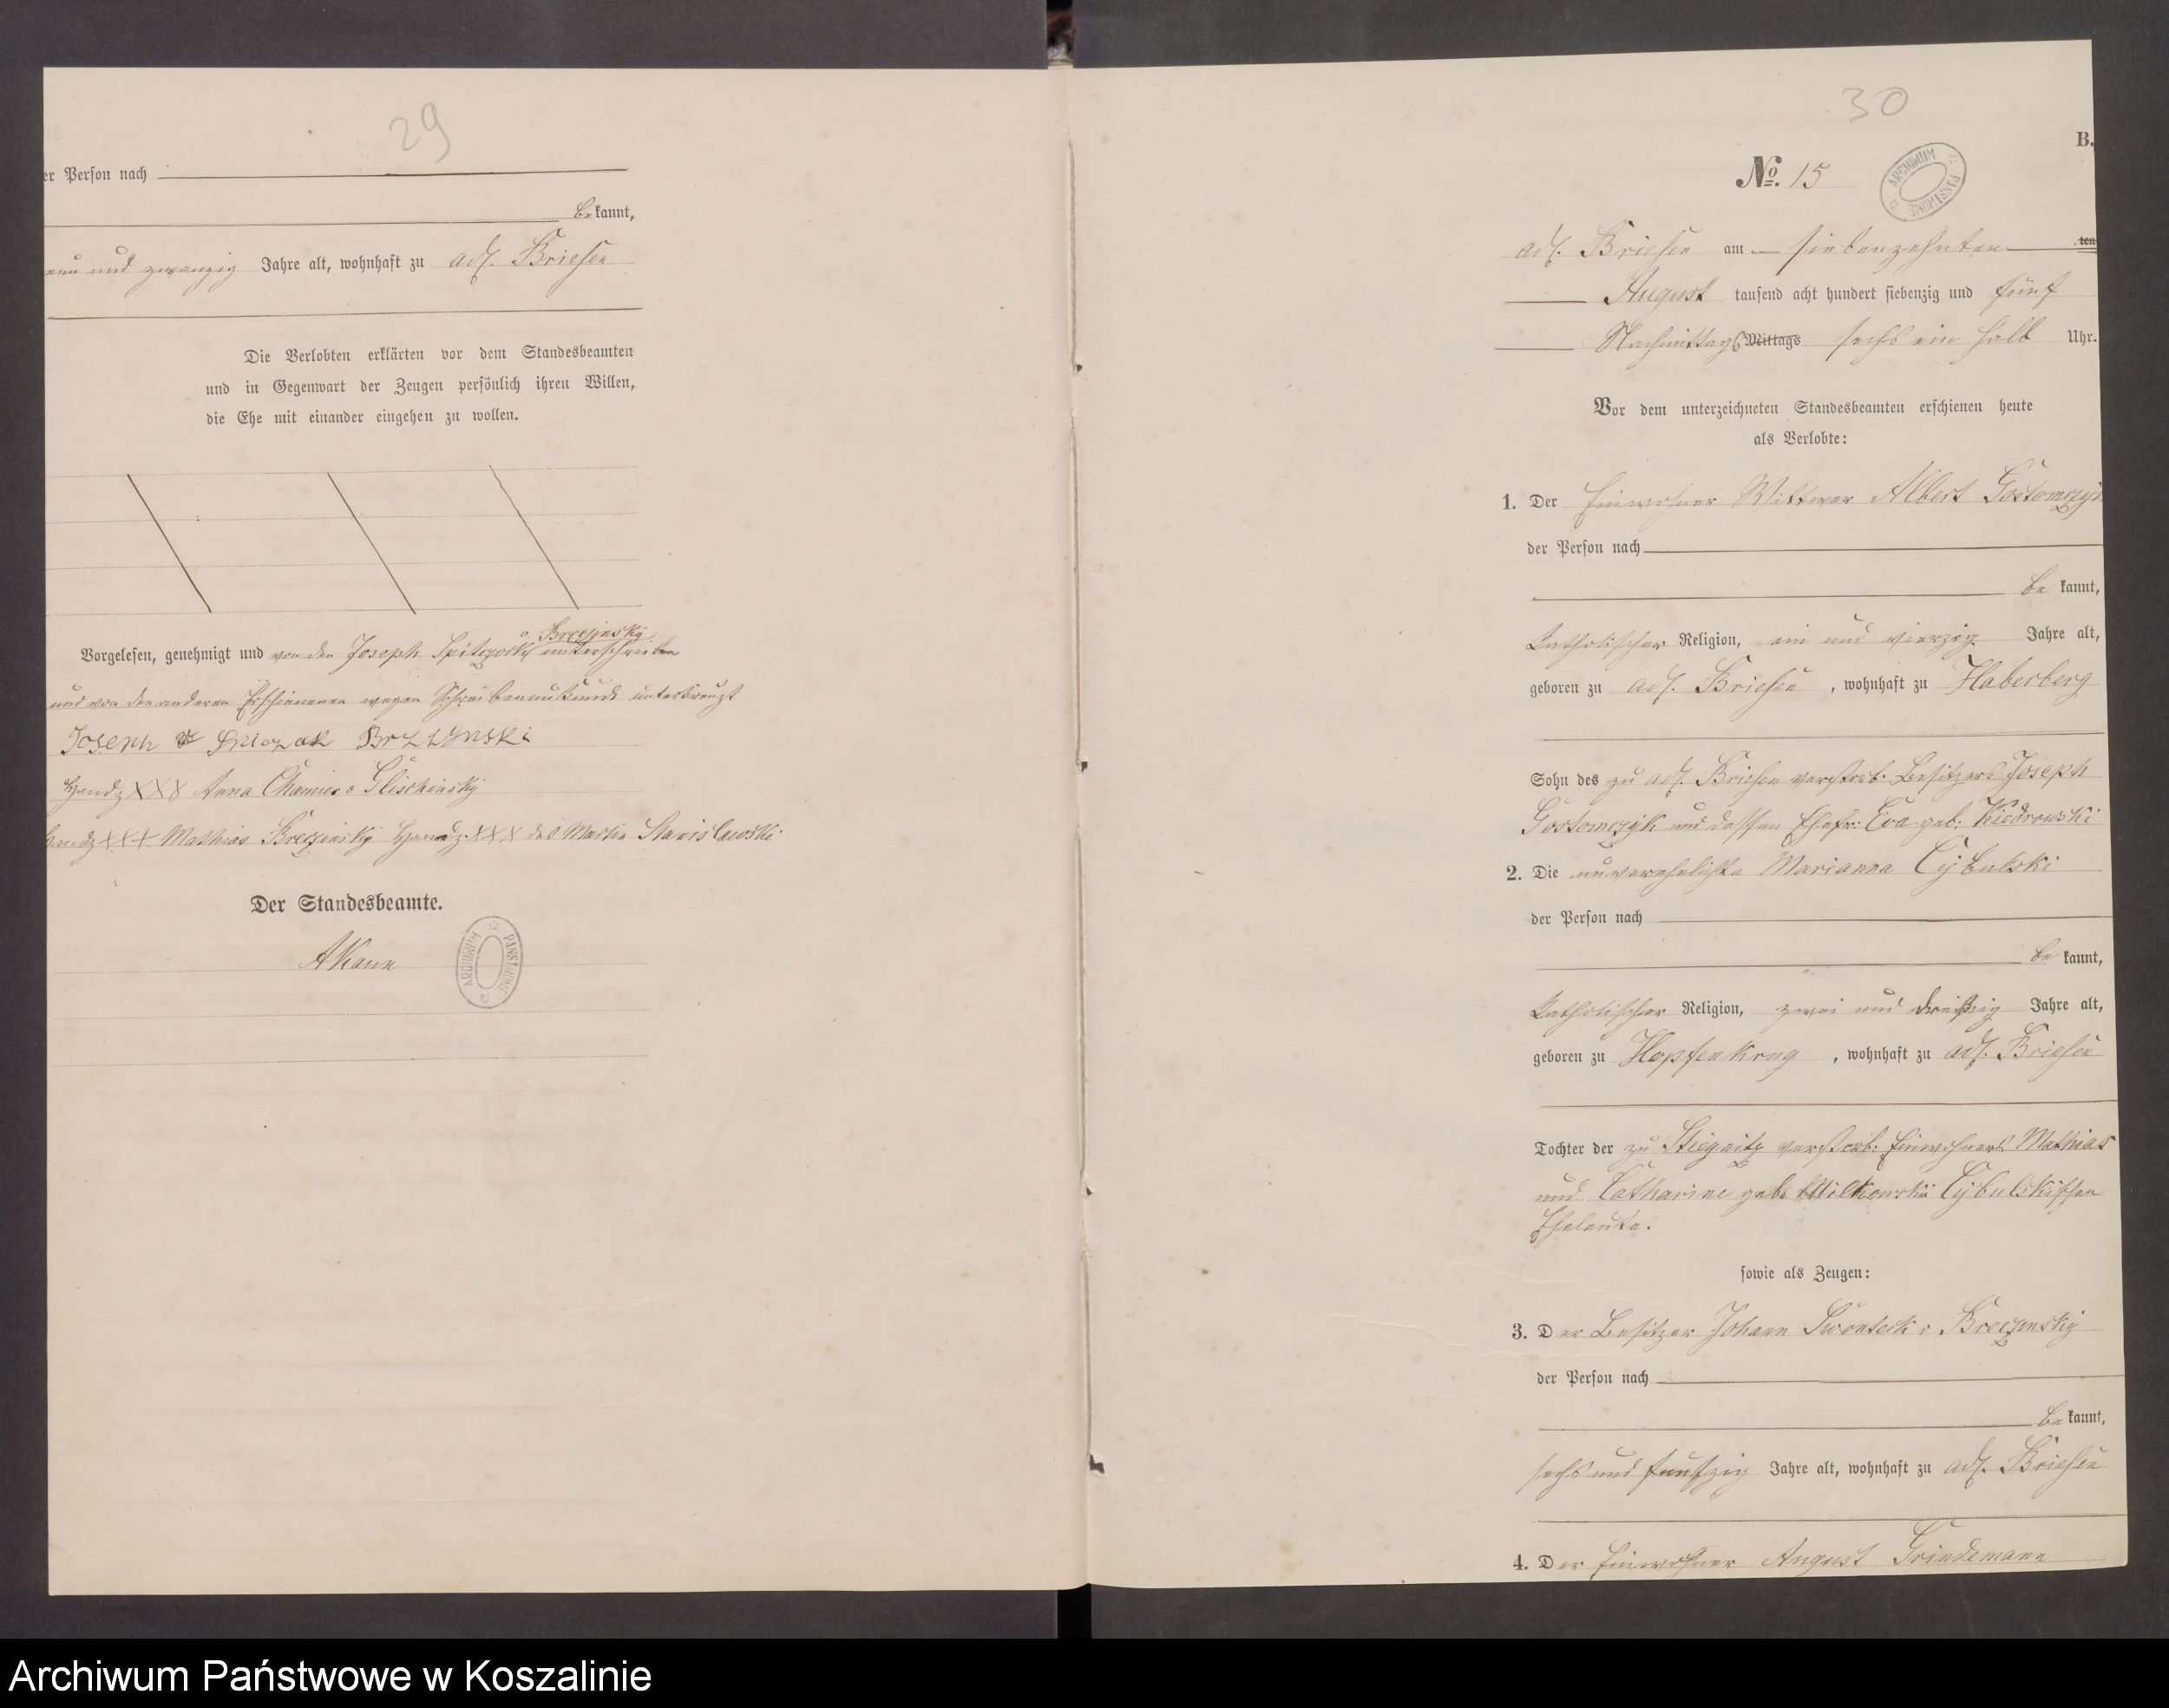 29
er Person nach
bekannt,
und zwanzig Jahre alt, wohnhaft zu adl. Briesen
Die Verlobten erklärten vor dem Standesbeamten
und in Gegenwart der Zeugen persönlich ihren Willen,
die Ehe mit einander eingehen zu wollen.
v. Brezynsky
Vorgelesen, genehmigt und von den Joseph unterschrieben
und von den anderen Erschienenen wegen unterkreuzt
Joseph v
Handz XXX Anna Chamier v Glischinsky
Handz XXX Mathias Handz. XXX des Martin Stanislawski
Der Standesbeamte.
AKann
ARCHIWUM PAŃSTWOWE
30
B.
No. 15
ARCHIWUM PAŃSTWOWE
adl. Briesen am siebenzehnten ten
August tausend acht hundert siebenzig und fünf
Nachmittags Mittags sechs ein halb Uhr.
Vor dem unterzeichneten Standesbeamten erschienen heute
als Verlobte:
1. Der Einwohner Wittwer Albert
der Person nach
bekannt,
katholischer Religion, ein und vierzig Jahre alt,
geboren zu adl. Briesen, wohnhaft zu Haberberg
Sohn des zu adl. Briesen verstorb. Besitzers Joseph
Gostomczyk und dessen Ehefr: Eva geb. Kiedrowski
2. Die unverehelichte Marianna Cybulski
der Person nach
bekannt,
katholischer Religion, zwei und dreißig Jahre alt,
geboren zu Hopfenkrug, wohnhaft zu adl. Briesen
Tochter der zu verstorb. Einwohners Mathias
und Catharine geb. Cybulskischen
Eheleute.
sowie als Zeugen:
3. Der Besitzer Johann v.
der Person nach
bekannt,
sechs und funfzig Jahre alt, wohnhaft zu adl. Briesen
4. Der Einwohner August Grindemann
Archiwum Państwowe w Koszalinie